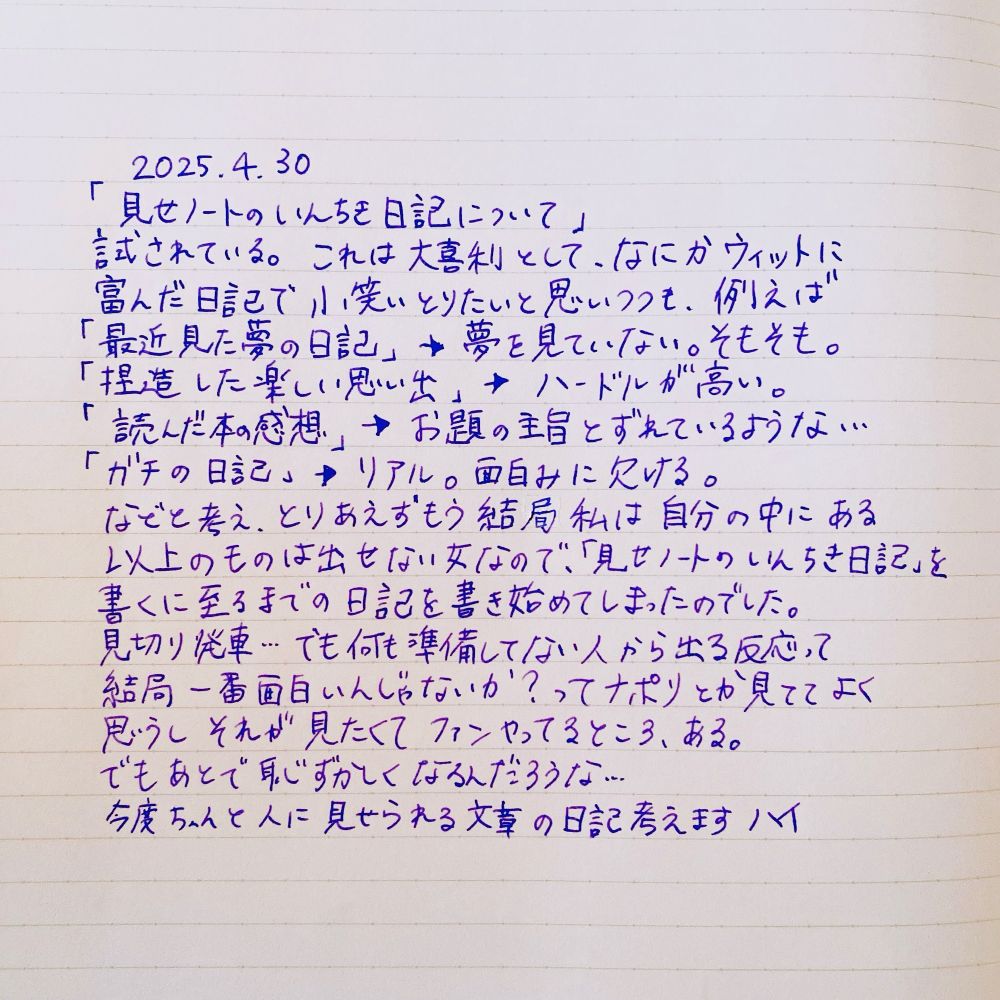 2025.4.30
「見せノートのいんちき日記について」
試されている。これは大喜利として、なにかウィットに
富んだ日記で小笑いとりたいと思いつつも、例えば
「最近見た夢の日記」→夢を見ていない。そもそも。
「捏造した楽しい思い出」→ハードルが高い。
「読んだ本の感想」→お題の主旨とずれているような…
「ガチの日記」→リアル。面白みに欠ける。
などと考え、とりあえずもう結局私は自分の中にある
以上のものは出せない女なので、「見せノートのいんちき日記」を
書くに至るまでの日記を書き始めてしまったのでした。
見切り発車…でも何も準備してない人から出る反応って
結局一番面白いんじゃないか?ってナポリとか見ててよく
思うしそれが見たくてファンやってるところ、ある。
でもあとで恥じずかしくなるんだろうな…
今度ちゃんと人に見せられる文章の日記考えますハイ